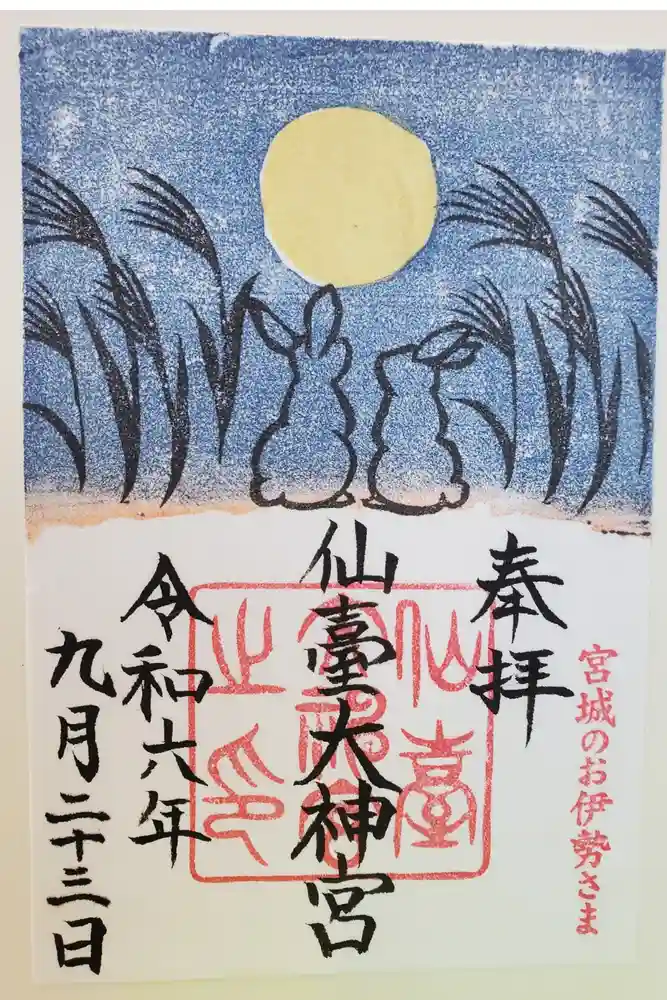 宮城のお伊勢さま
奉拝
仙臺大神宮
令和六年
九月二十三日
仙臺
之印